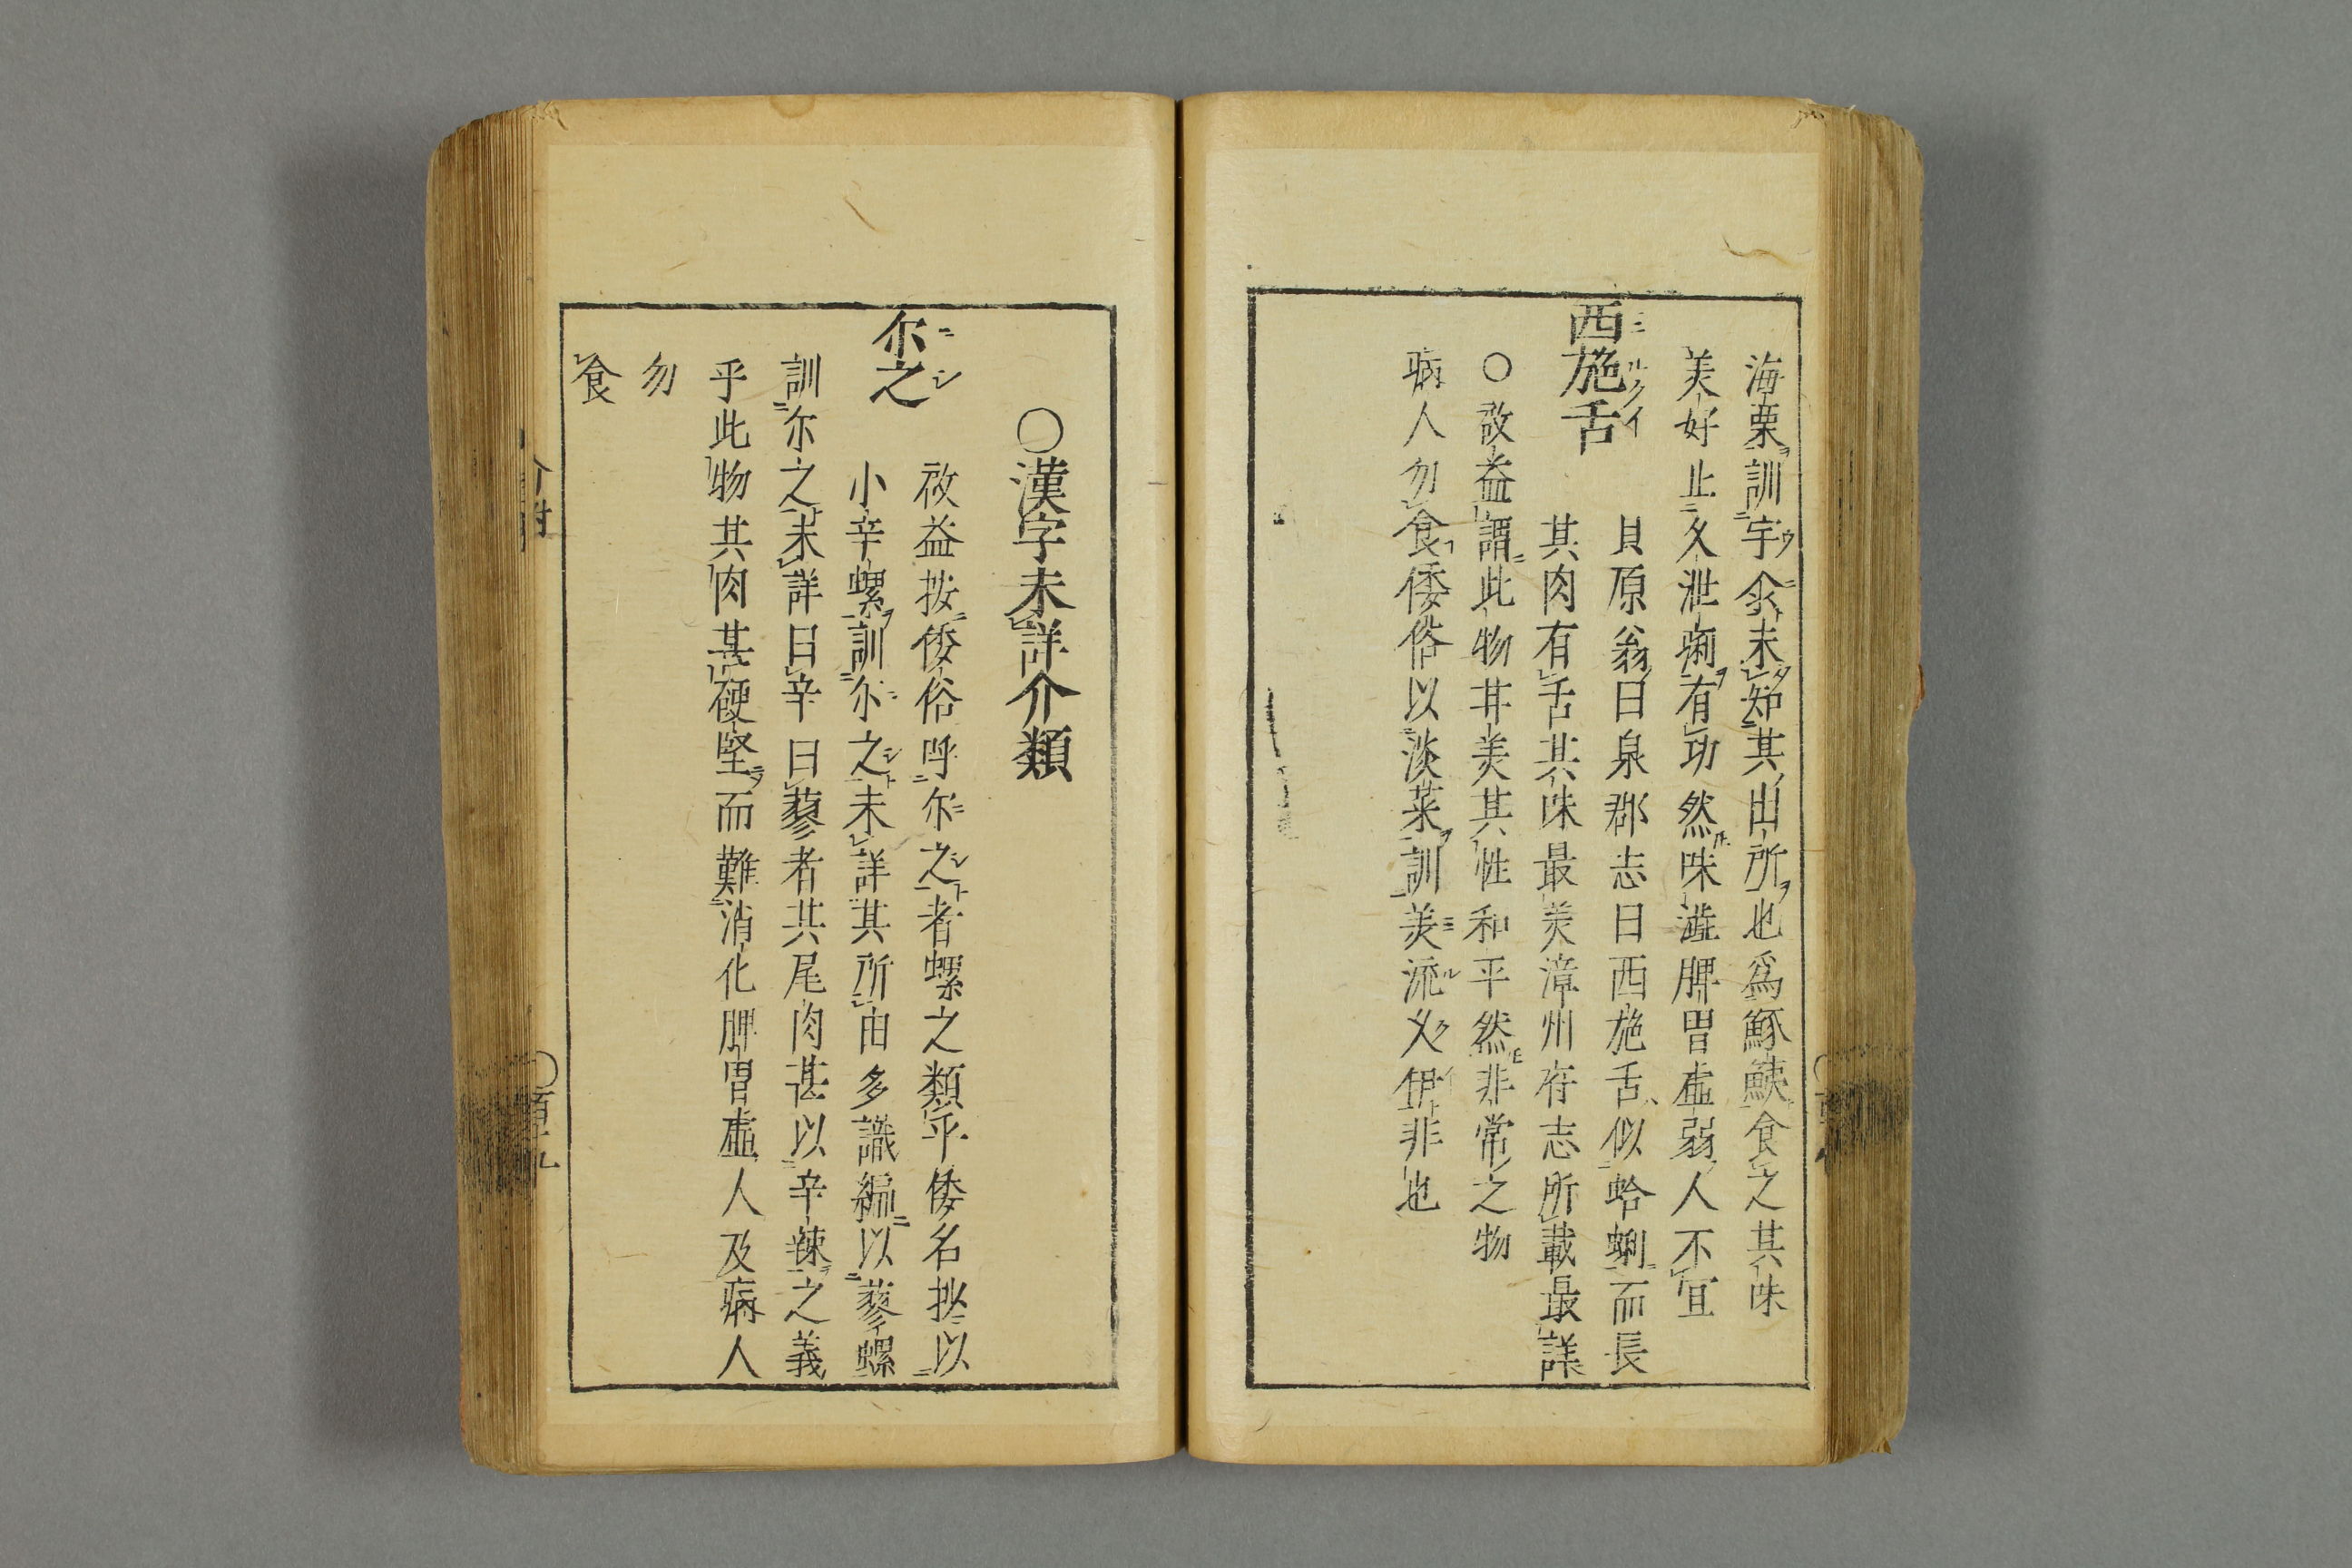 海栗訓宇仒未知其出所也爲鯀鮧食之其味
美好止久泄痢有功然味澁脾胃虛弱人不宜
西施舌
貝原翁曰泉郡志曰西施舌似蛤蜊而長
其肉有舌其味最美漳州府志所載最詳
○啟益謂此物甘美其性和平然非常之物
病人勿食倭俗以淡菜訓美流久伊非也
○漢字未詳介類
尓之
啟益按倭俗呼尓之者螺之類乎倭名抄以
小辛螺訓尓之未詳其所由多識編以蓼螺
訓尓之未詳曰辛曰蓼者其尾肉甚以辛辣之義
乎此物其肉甚硬堅而難消化脾胃虛人及病人
勿
食